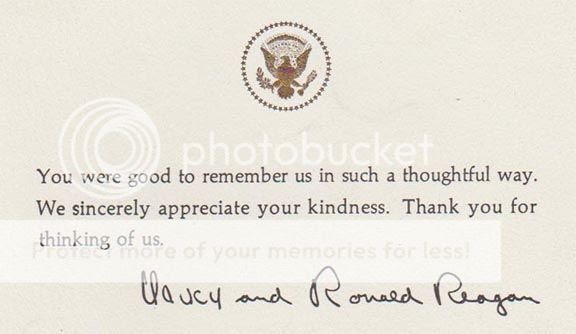 photobucket
You were good to remember us in such a thoughtful way.
We sincerely appreciate your kindness. Thank you for
thinking of us.
Protect more of your memories for less!
Nancy and Ronald Reagan